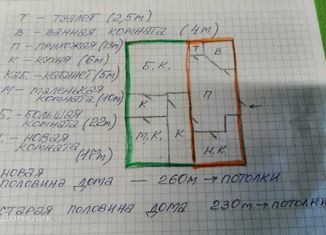 Т - ТУАЛЕТ (2,5м)
В - ВАННАЯ КОМНАТА (4м)
П - ПРИХОЖАЯ (13м)
К - КУХНЯ (6м)
КАБ. - КАБИНЕТ (5м)
М - МАЛЕНЬКАЯ
КОМНАТА (10м)
Б. - БОЛЬШАЯ
КОМНАТА (22м)
- НОВАЯ
КОМНАТА
(17м)
Б.К.
Т
В
П
К
М.К.
К
Н.К.
НОВАЯ
ПОЛОВИНА ДОМА — 260м → ПОТОЛКИ
СТАРАЯ ПОЛОВИНА ДОМА 230м → ПОТОЛКИ
ДОМКЛИК